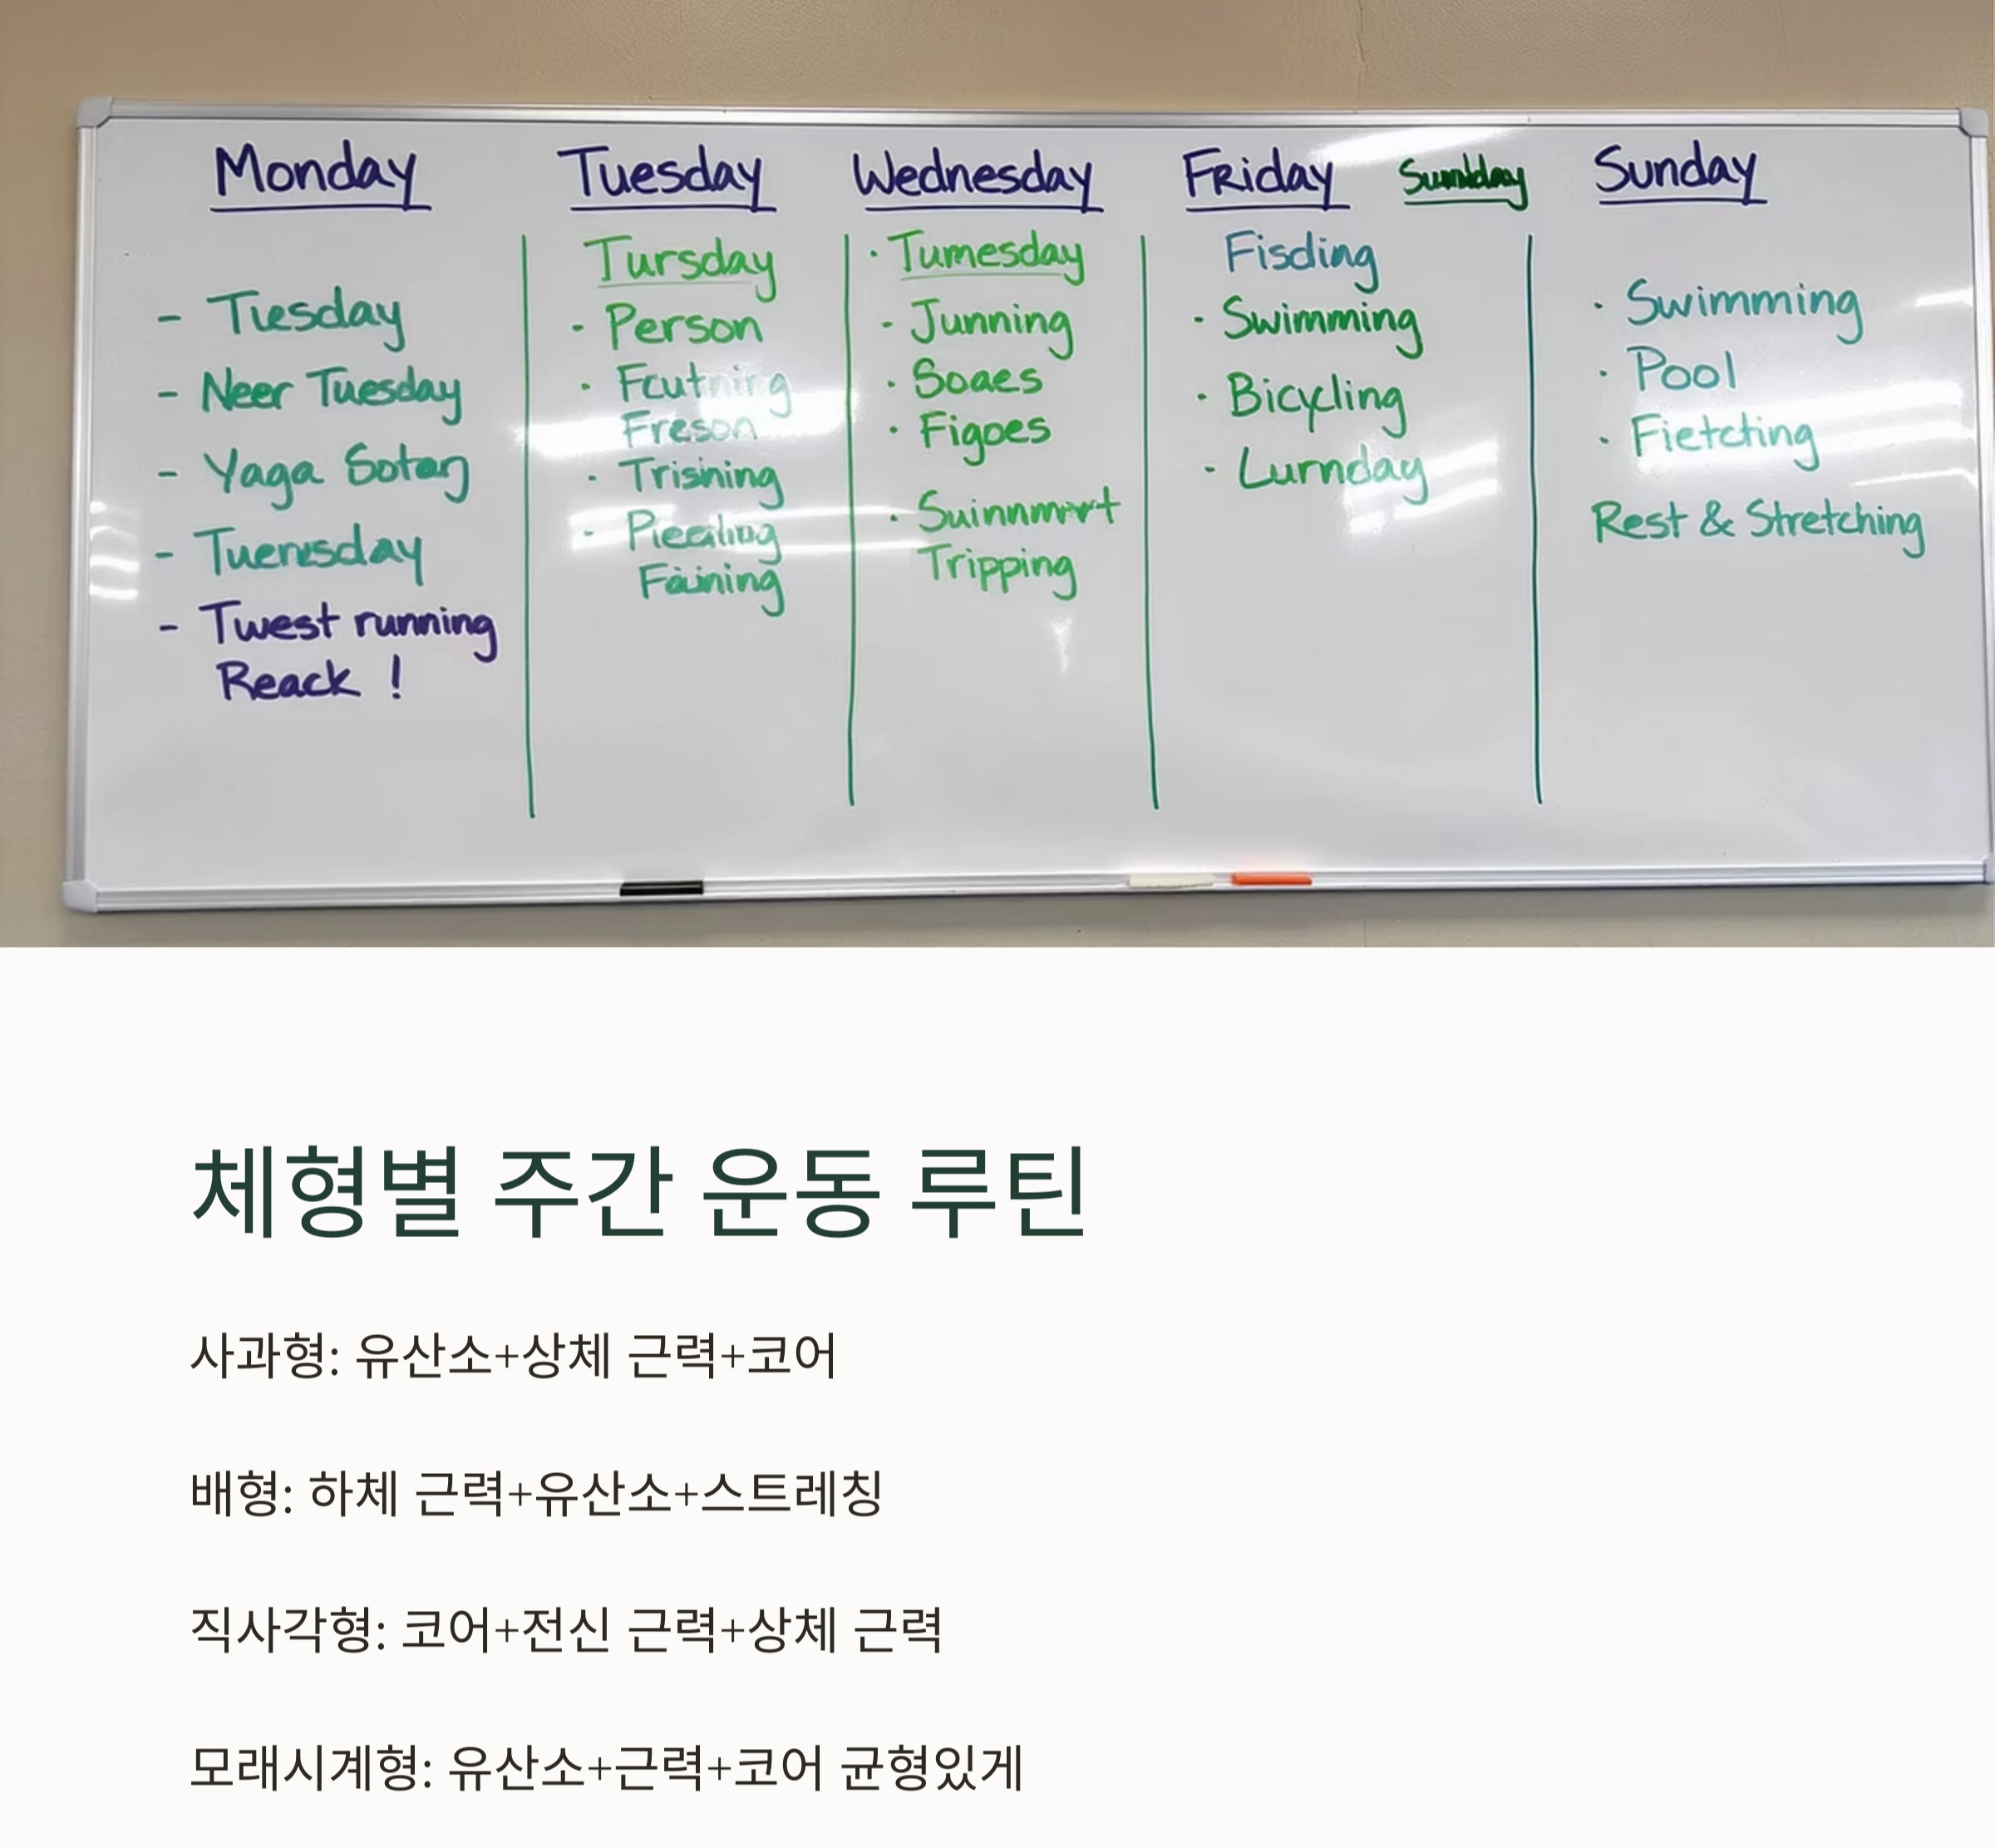 Monday
Tuesday
Wednesday
FRiday
Sunday
- Tuesday
- Neer Tuesday
- Yaga
- Tuenrsday
- Twest running
Reack !
Tursday
- Person
Freson
· Trisning
Faining
· Tumesday
- Junning
· Soaes
· Figoes
Tripping
Fisding
· Swimming
· Bicycling
- Lurnday
· Swimming
· Pool
· Fietcting
Rest & Stretching
체형별 주간 운동 루틴
사과형: 유산소+상체 근력+코어
배형: 하체 근력+유산소+스트레칭
직사각형: 코어+전신 근력+상체 근력
모래시계형: 유산소+근력+코어 균형있게